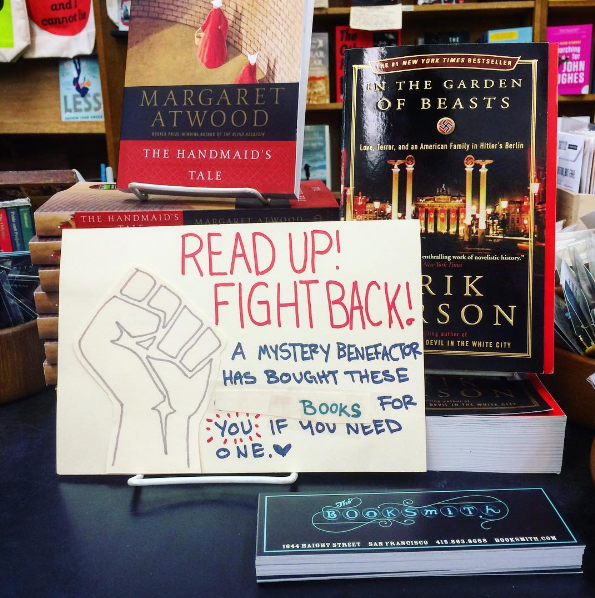 and i
cannot lie
LESS
MARGARET
ATWOOD
THE HANDMAID'S
TALE
#1 NEW YORK TIMES BESTSELLER
IN THE GARDEN
OF BEASTS
Love, Terror, and an American Family in Hitler's Berlin
THE HANDMAID'S MARGARET ATWOOD
READ UP!
FIGHT BACK!
A MYSTERY BENEFACTOR
HAS BOUGHT THESE
BOOKS FOR
YOU IF YOU NEED
ONE.
enthralling work of novelistic history."
New York Times
RIK
RSON
author of
DEVIL IN THE WHITE CITY
JOHN
The
BOOKSMITH
1644 HAIGHT STREET SAN FRANCISCO 415.863.8688 BOOKSMITH.COM